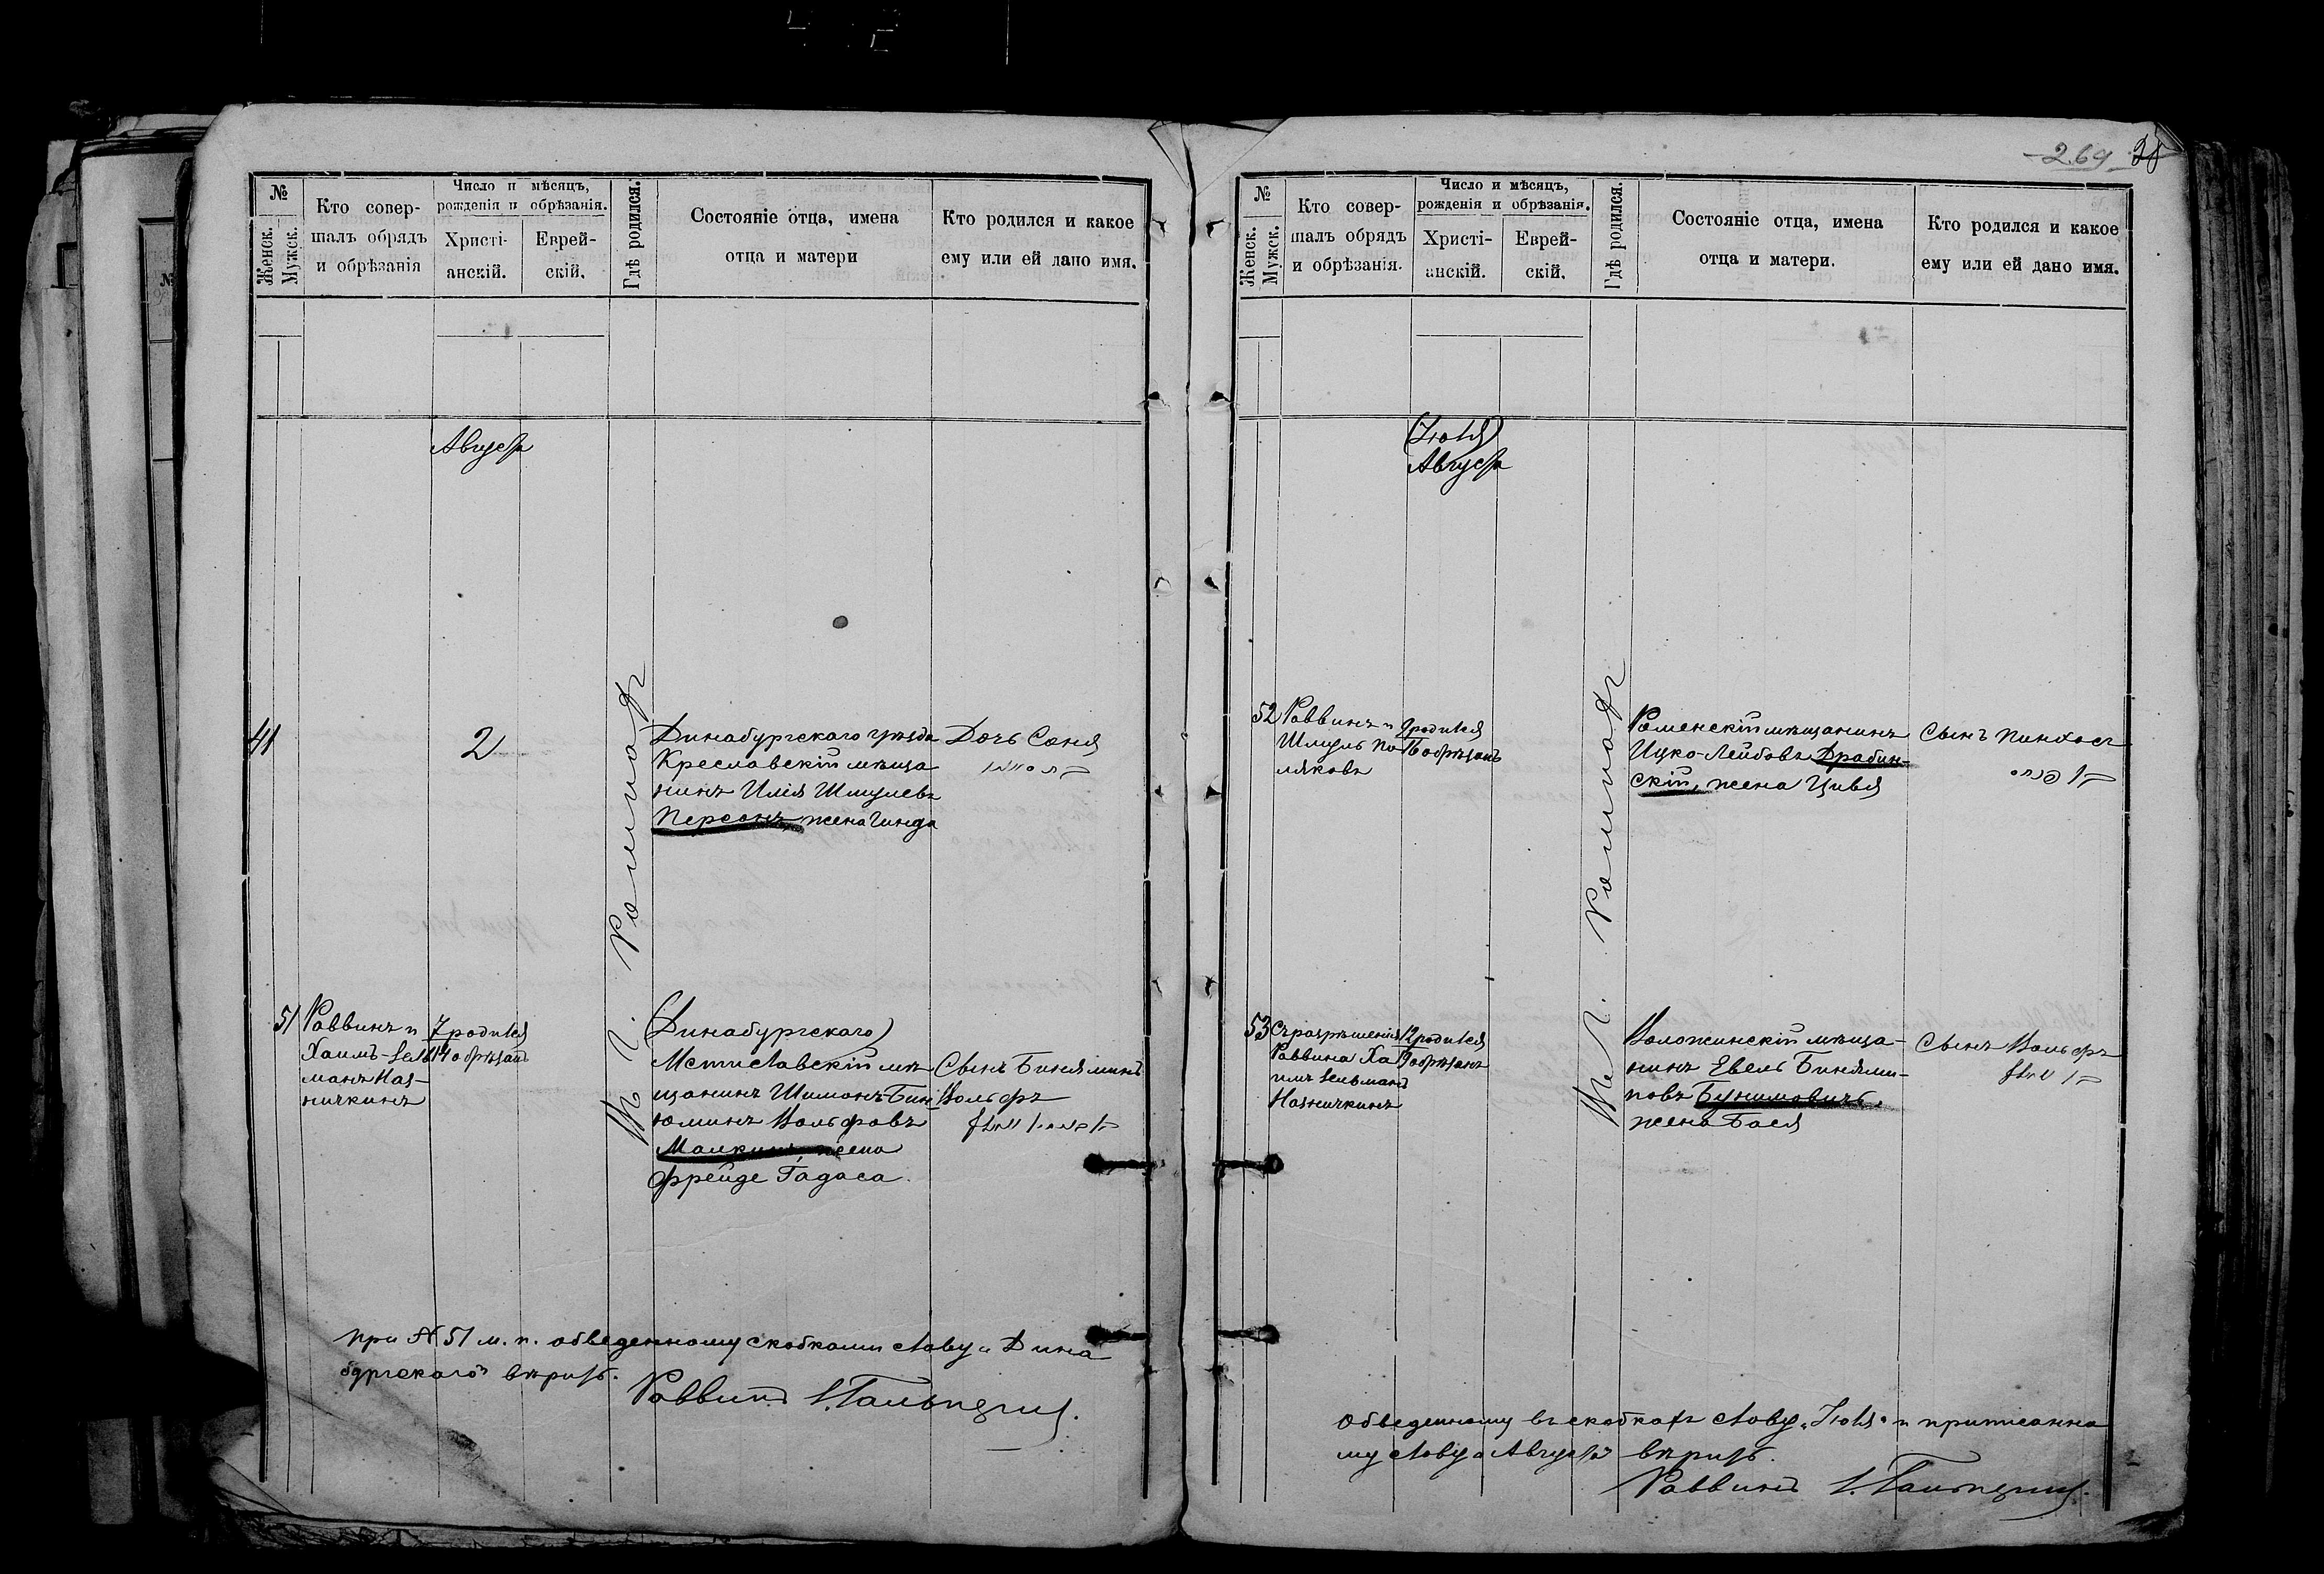 №
Женск.
Мужск.
Кто совер-
шалъ обрядъ
и обрѣзанія
Число и мѣсяцъ,
рожденія и обрѣзанія.
Христі-
анскій.
Еврей-
скій.
Гдѣ родился.
Состояніе отца, имена
отца и матери
Кто родился и какое
ему или ей дано имя.
Августа
41
2
Динабургскаго уѣзда
Креславскій мѣща
нинъ Илія Шмулевъ
Персонъ жена Гинда
Дочь Соня
Въ г. Ромнахъ
51
Раввинъ и
Хаимъ-Зель
манъ Каз-
ничкинъ
7 родился
14 обрѣзанъ
(Динабургскаго)
Мстиславскій мѣ
щанинъ Шимонъ-Бин-
юминъ Вольфовъ
Малкинъ, жена
Фрейде Гадаса.
Сынъ Биняминъ
Вольфъ
При № 51 м. п. обведенному скобками слову „Дина
бургскаго" вѣрить.
Раввинъ І. Гальперинъ.
269
№
Женск.
Мужск.
Кто совер-
шалъ обрядъ
и обрѣзанія.
Число и мѣсяцъ,
рожденія и обрѣзанія.
Христі-
анскій.
Еврей-
скій.
Гдѣ родился.
Состояніе отца, имена
отца и матери.
Кто родился и какое
ему или ей дано имя.
(Іюля)
Августа
52
Раввинъ и
Шмуль По-
ляковъ
9 родился
16 обрѣзанъ
Въ г. Ромнахъ
Роменскій мѣщанинъ
Ицко-Лейбовъ Драбин-
скій, жена Цивья
Сынъ Пинхосъ
53
Съ разрѣшенія
Раввина Ха
имъ Зельманъ
Казничкинъ
12 родился
19 обрѣзанъ
Воложинскій мѣща-
нинъ Евель Бинями-
новъ Бунимовичъ,
жена Бася
Сынъ Вольфъ
Обведенному въ скобкахъ слову „Іюля" и приписанно
му слову „Августа" вѣрить.
Раввинъ І. Гальперинъ.